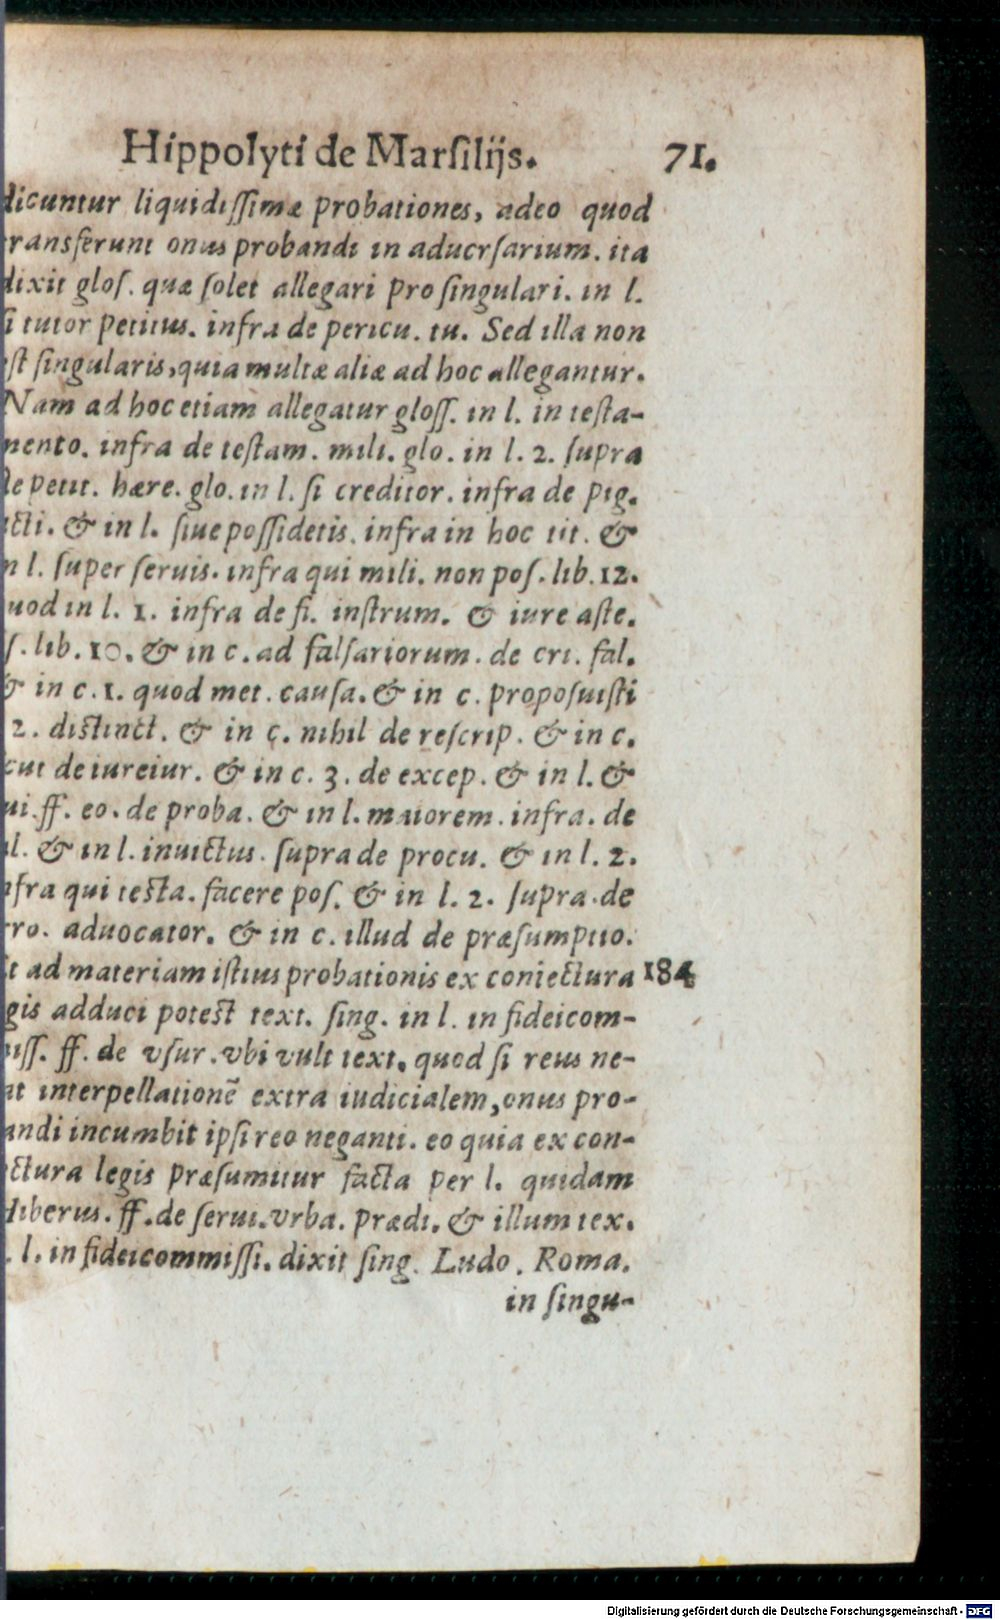 Hippolyti de Marſilijs. 71.
dicuntur liquidiſſimæ probationes, adeo quod
transferunt onus probandi in aduerſarium. ita
dixit gloſ. quæ ſolet allegari pro ſingulari. in l.
ſi tutor petitus. infra de pericu. tu. Sed illa non
eſt ſingularis, quia multæ aliæ ad hoc allegantur.
Nam ad hoc etiam allegatur gloſſ. in l. in teſta-
mento. infra de teſtam. mili. glo. in l. 2. ſupra
de petit. hære. glo. in l. ſi creditor. infra de pig.
acti. & in l. ſiue poſſidetis. infra in hoc tit. &
in l. ſuper ſeruis. infra qui mili. non poſ. lib. 12.
quod in l. 1. infra de fi. inſtrum. & iure aſte.
ſ. lib. 10. & in c. ad falſariorum. de cri. fal.
& in c. 1. quod met. cauſa. & in c. propoſuiſti
2. diſtinct. & in c. nihil de reſcrip. & in c.
cut de iureiur. & in c. 3. de excep. & in l. &
ui. ff. eo. de proba. & in l. maiorem. infra. de
al. & in l. inuictus. ſupra de procu. & in l. 2.
infra qui teſta. facere poſ. & in l. 2. ſupra. de
rro. aduocator. & in c. illud de præſumptio.
Et ad materiam iſtius probationis ex coniectura 184
legis adduci poteſt text. ſing. in l. in fideicom-
miſſ. ff. de vſur. vbi vult text. quod ſi reus ne-
at interpellationē extra iudicialem, onus pro-
bandi incumbit ipſi reo neganti. eo quia ex con-
iectura legis præſumitur facta per l. quidam
Hiberus. ff. de ſerui. vrba. prædi. & illum tex.
. l. in fideicommiſſi. dixit ſing. Ludo. Roma.
in ſingu-
Digitalisierung gefördert durch die Deutsche Forschungsgemeinschaft - DFG